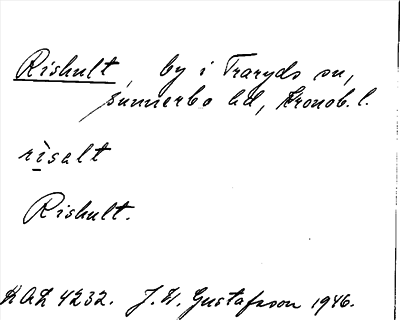 Rishult, by i Traryds sn,
Sunnerbo hd, Kronob. l.
rìsalt
Rishult.
KAL 4232. J. W. Gustafsson 1946.